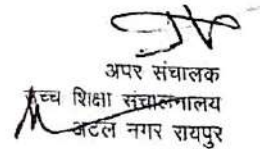 अपर संचालक
उच्च शिक्षा संचालनालय
अटल नगर रायपुर